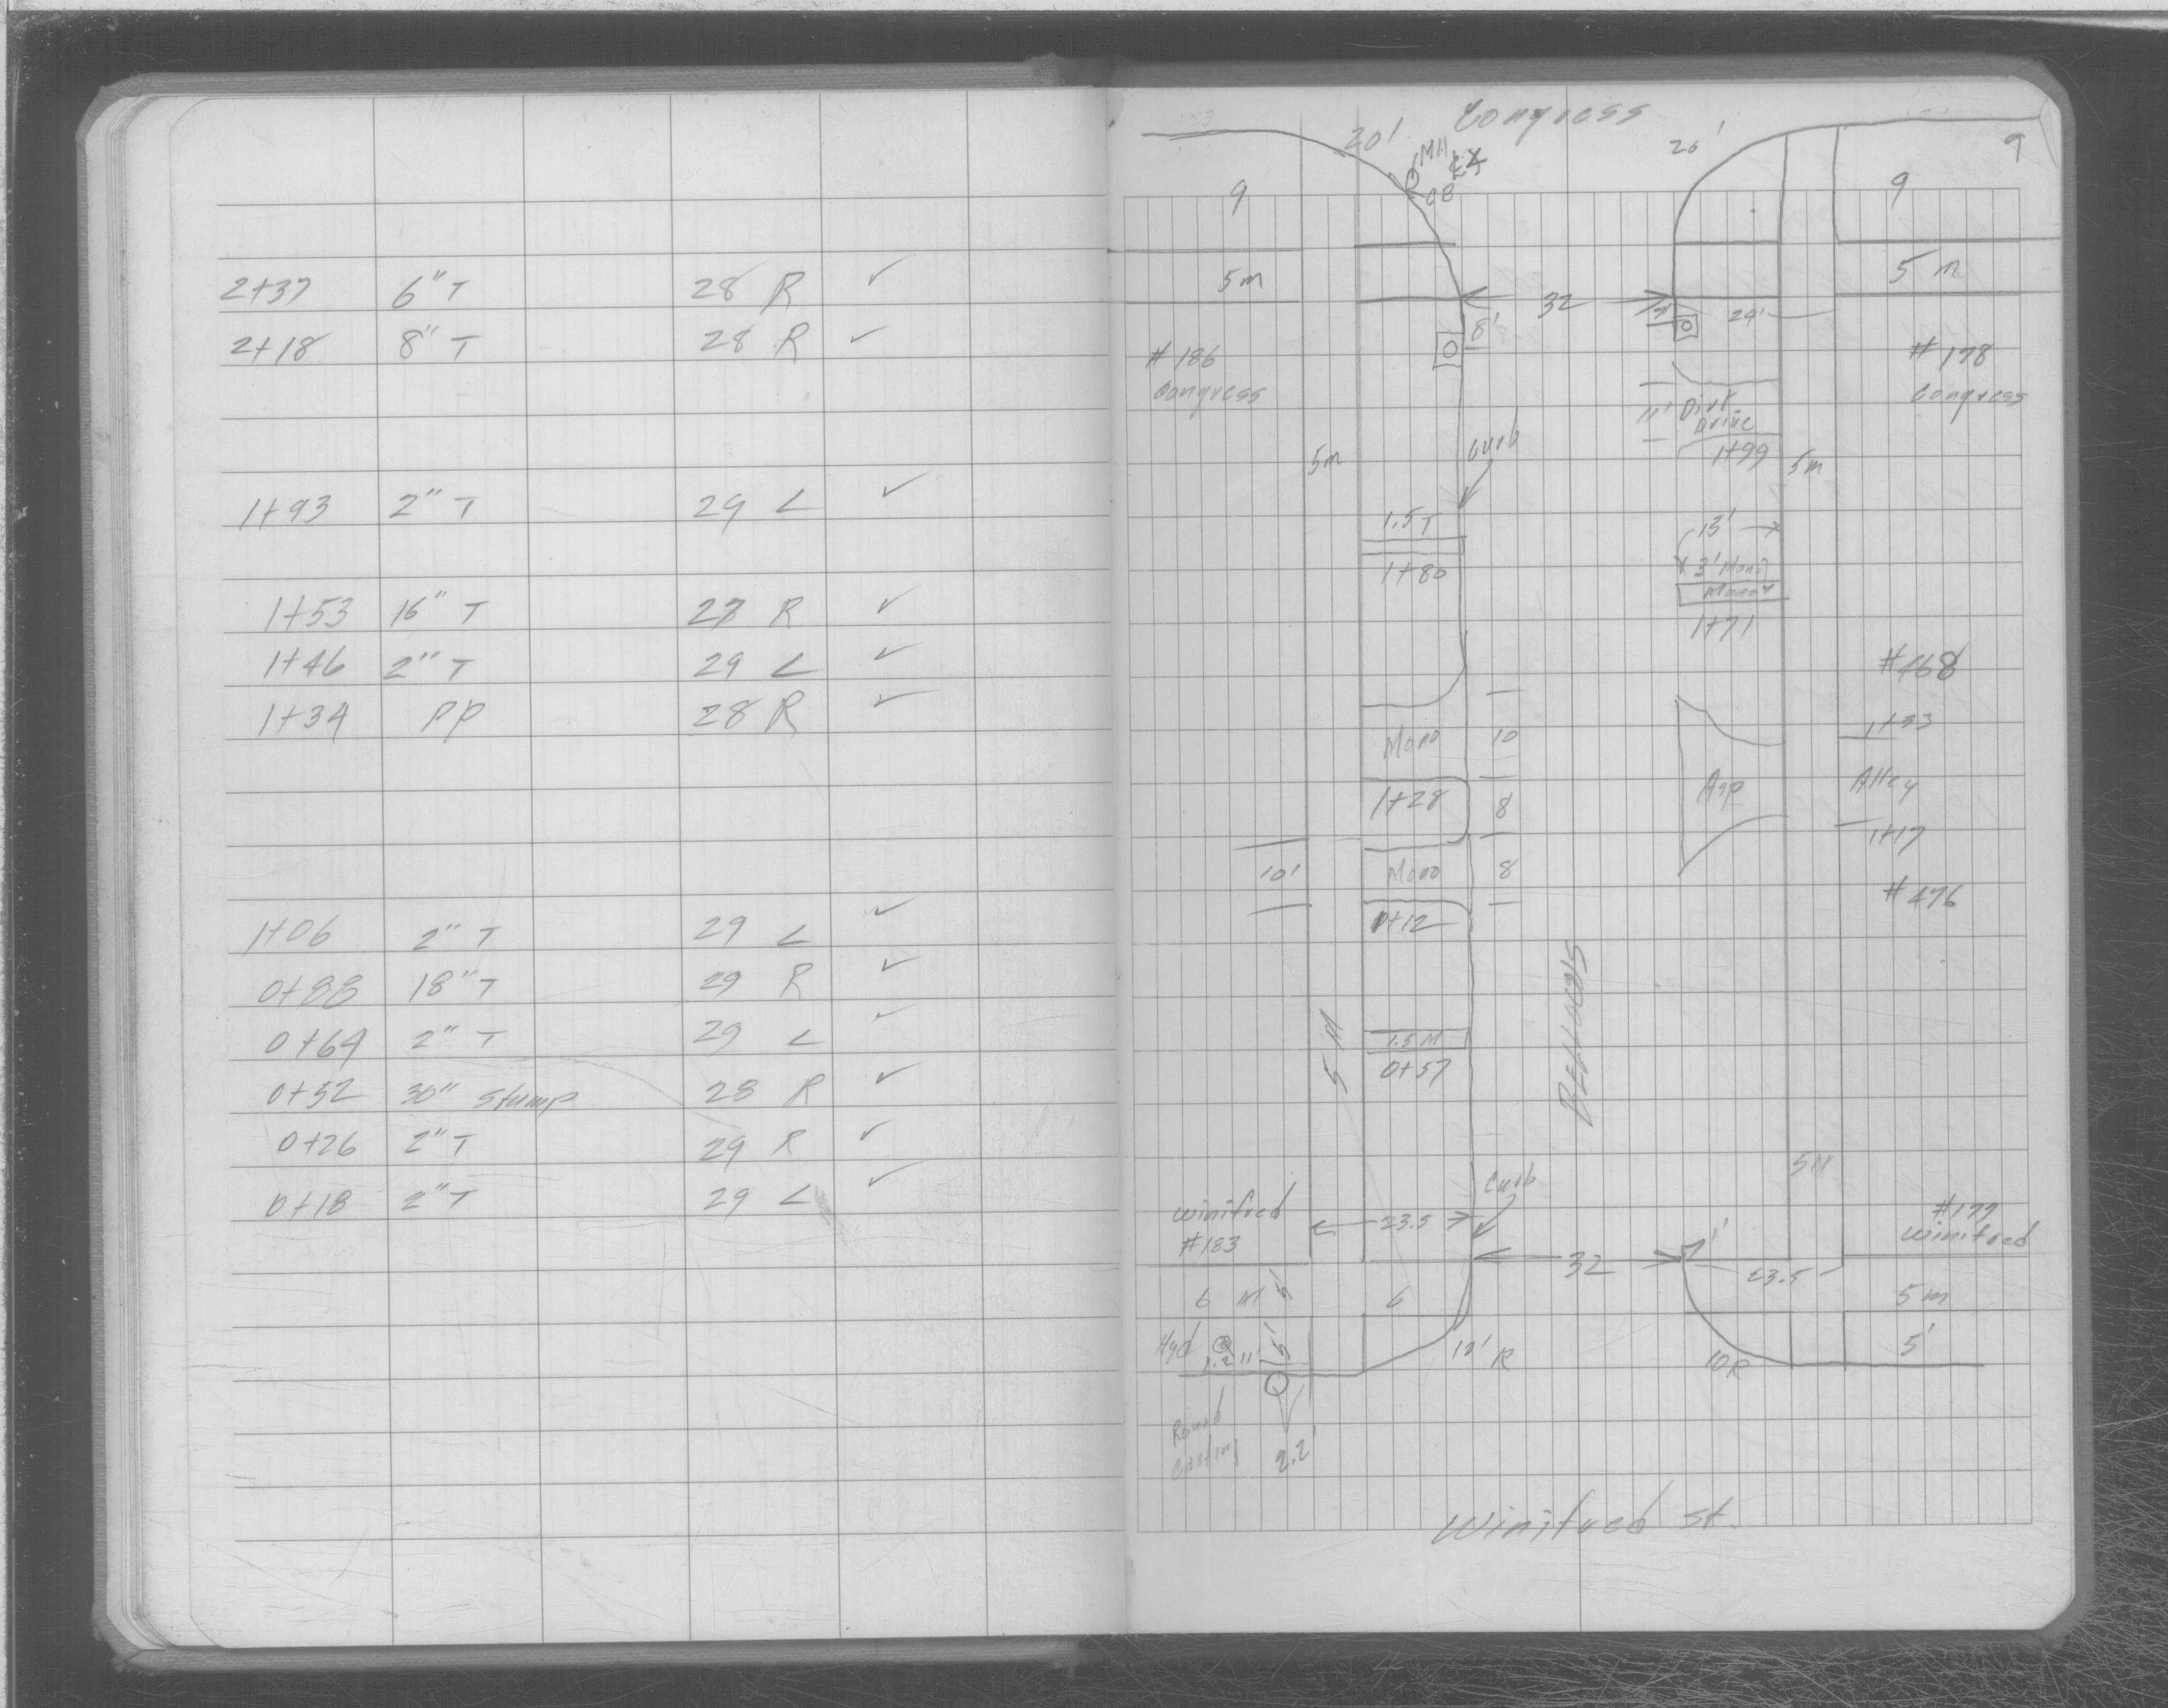 2+37 6" T 28 R ✓
2+18 8" T 28 R ✓
1+93 2" T 29 L ✓
1+53 16" T 27 R ✓
1+46 2" T 29 L ✓
1+34 PP 28 R ✓
1+06 2" T 29 L ✓
0+88 18" T 29 R ✓
0+64 2" T 29 L ✓
0+52 30" stump 28 R ✓
0+26 2" T 29 R ✓
0+18 2" T 29 L ✓
Congress
20' 20'
MH
CB
9 9 9
5m 5m
32
8' 24'
#186
Congress
#178
Congress
11' Dirt
Drive
1+99
5m Curb 5m
1.5 T
1+80
13'
3' Mono
Mono
1+71
#468
1+33
Mono 10
Asp Alley
1+28 8
1+17
10' Mono 8
#476
0+12
5 M
1.5 M
0+57
5M
Curb
Winifred
#183
23.5
#177
Winifred
32 7'
23.5
6 M 5' 6 5m
Hyd 5' 10' R 10R 5'
Round
Casting 2.2'
Winifred St.